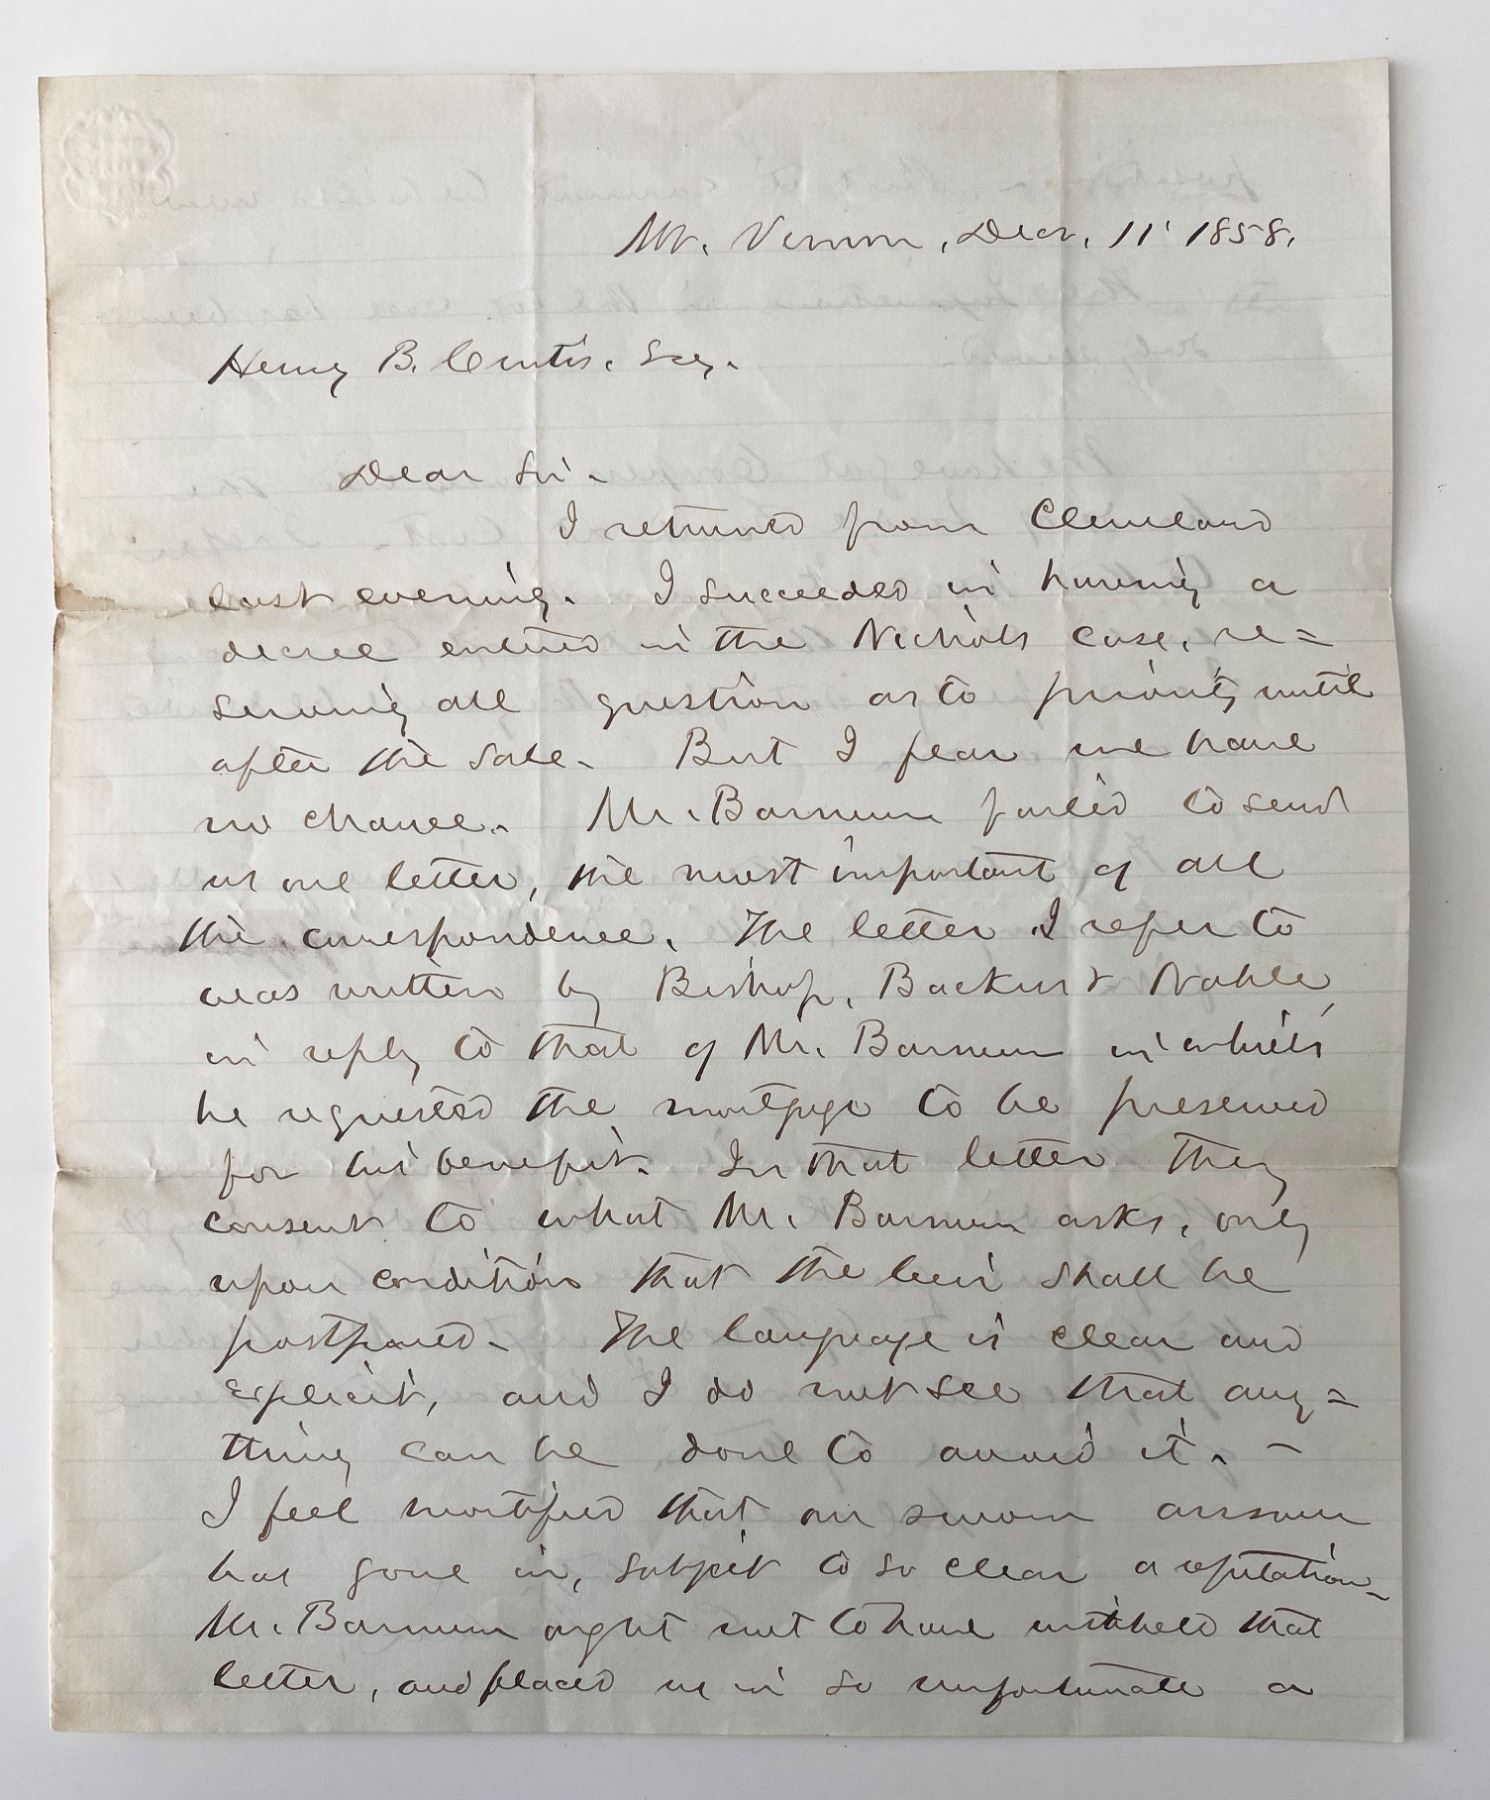 Mt. Vernon, Decr. 11' 1858.
Henry B. Curtis, Esq.
Dear Sir.
I returned from Cleveland
last evening. I succeeded in having a
decree entered in the Nichols case, re=
serving all question as to priority until
after the sale. But I fear we have
no chance. Mr. Barnum failed to send
us one letter, the most important of all
the correspondence. The letter I refer to
was written by Bishop, Backus & Noble,
in reply to that of Mr. Barnum in which
he requested the mortgage to be preserved
for his benefit. In that letter they
consent to what Mr. Barnum asks, only
upon condition that the lien shall be
postponed. The language is clear and
explicit, and I do not see that any=
thing can be done to avoid it. -
I feel mortified that our sworn answer
has gone in, subject to so clear a refutation.
Mr. Barnum ought not to have withheld that
letter, and placed us in so unfortunate a